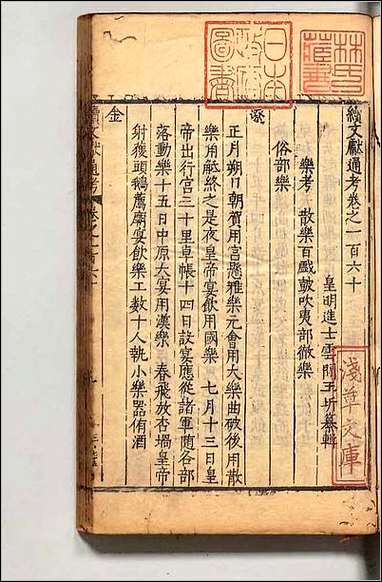 續文獻通考卷之一百六十
皇明進士雲間王圻纂輯
樂考 散樂百戲鼓吹夷部徹樂
俗部樂
遼
正月朔日朝賀用宫懸雅樂元會用大樂曲破後用散
樂用觝終之是夜皇帝宴飲用國樂 七月十三日皇
帝出行宫三十里卓帳十四日設宴應從諸軍隨各部
落動樂十五日中原大宴用漢樂 春飛放杏堝皇帝
射獲頭鵝薦廟宴飲樂工數十人執小樂器侑酒
金
續文獻通考
卷之一百六十
林氏藏書
日本政府圖書
淺草文庫